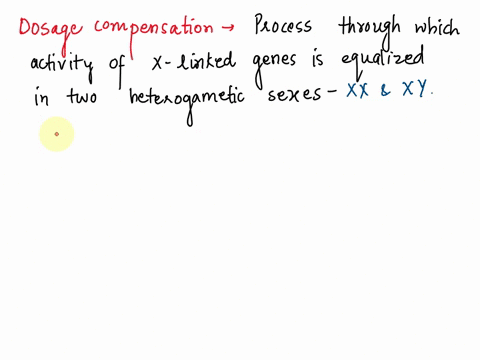 Dosage compensation → Process through which
activity of X-linked genes is equalized
in two heterogametic sexes - XX & XY.